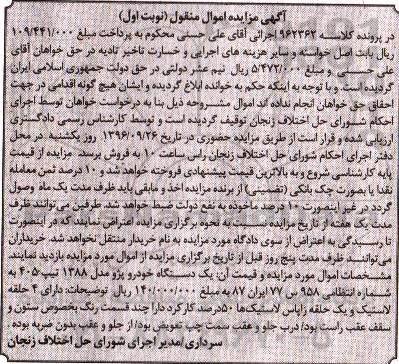 آگهی مزایده اموال منقول (نوبت اول)
در پرونده کلاسه ۹۶۲۳۶۲ اجرائی آقای علی حسنی محکوم به پرداخت مبلغ ۱۰۹/۴۴۱/۰۰۰
ریال بابت اصل خواسته و سایر هزینه های اجرایی و خسارت تاخیر تادیه در حق خواهان آقای
علی و مبلغ ۵/۴۷۲/۰۰۰ ریال نیم عشر دولتی در حق دولت جمهوری اسلامی ایران
گردیده است و با توجه به اینکه حکم به خوانده ابلاغ گردیده و ایشان هیچ گونه اقدامی در جهت
احقاق حق خواهان انجام نداده اند اموال مشروحه ذیل بنا به درخواست خواهان توسط اجرای
احکام شورای حل اختلاف زنجان توقیف گردیده است و توسط کارشناس رسمی دادگستری
ارزیابی شده و قرار است از طریق مزایده حضوری در تاریخ ۱۳۹۶/۰۹/۲۶ روز یکشنبه در محل
دفتر اجرای احکام شورای حل اختلاف زنجان راس ساعت ۱۰ به فروش برسد. مزایده از قیمت
پایه کارشناسی شروع و به بالاترین قیمت پیشنهادی فروخته خواهد شد و ۱۰ درصد ثمن معامله
نقدا یا بصورت چک بانکی (تضمینی) از برنده مزایده اخذ و مابقی باید ظرف مدت یک ماه وصول
گردد در غیر اینصورت ۱۰ درصد ماخوذه به نفع دولت ضبط خواهد شد. طرفین می‌توانند ظرف
مدت یک هفته از تاریخ مزایده نسبت به نحوه برگزاری مزایده اعتراض نمایند که در اینصورت
تا رسیدگی به اعتراض از سوی دادگاه مورد مزایده به نام خریدار منتقل نخواهد شد. خریداران
می‌توانند ظرف مدت پنج روز قبل از تاریخ برگزاری مزایده از اموال مورد مزایده بازدید نمایند.
مشخصات اموال مورد مزایده و قیمت آن: یک دستگاه خودرو پژو مدل ۱۳۸۸ تیپ ۴۰۵ به
شماره انتظامی ۹۵۸ س ۷۷ ایران ۸۷ به مبلغ ۱۴۰/۰۰۰/۰۰۰ ریال توضیحات: دارای ۴ حلقه
لاستیک و یک حلقه زاپاس لاستیک‌ها ۵۰درصد کارکرد دارا چند قسمت رنگ بخصوص ستون و
سقف عقب راست بود/ درب جلو و عقب سمت چپ تعویض بود/ از جلو و عقب بدون ضربه بوده
سرداری/مدیر اجرای شورای حل اختلاف زنجان